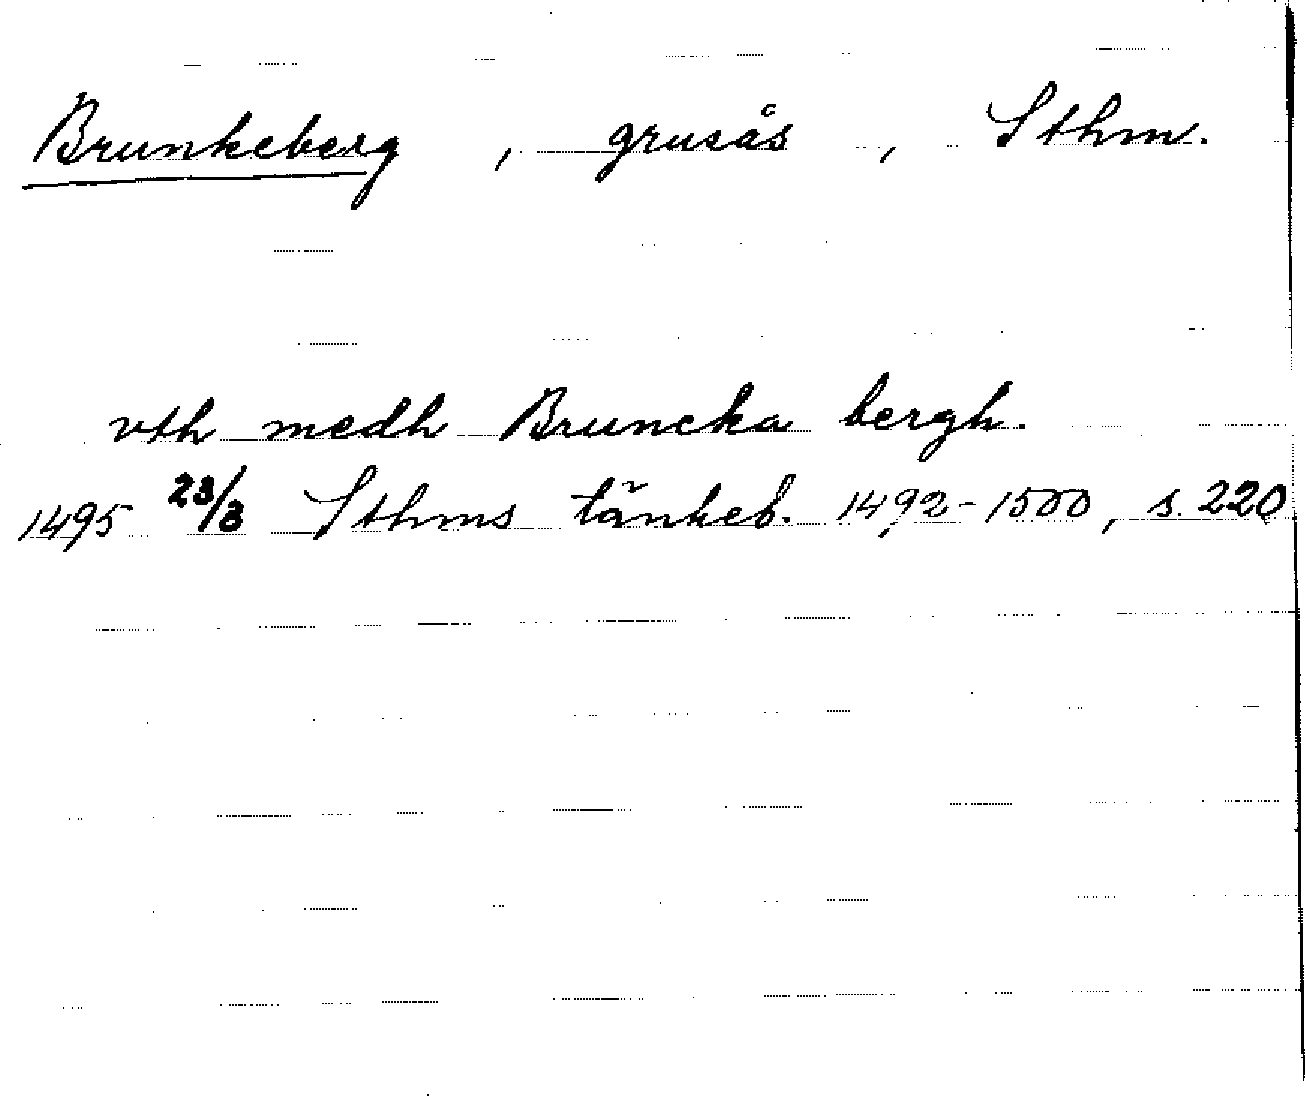 Brunkeberg, grusås, Sthm.
vth medh Bruncka bergh.
1495 23/3 Sthms tänkeb. 1492-1500, s. 220